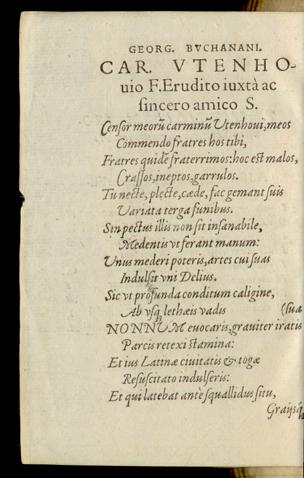 GEORG. BVCHANANI.
CAR. VTENHO-
uio F. Erudito iuxtà ac
sincero amico S.
Censor meorũ carminũ Vtenhoui, meos
Commendo fratres hos tibi,
Fratres quidẽ fraterrimos: hoc est malos,
Crassos, ineptos, garrulos.
Tu necte, plecte, cæde, fac gemant suis
Variata terga funibus.
Sin pectus illis non sit insanabile,
Medentis vt ferant manum:
Vnus mederi poteris, artes cui suas
Indulsit vni Delius.
Sic vt profunda conditum caligine,
Ab vsq; lethæis vadis (sua
NONNVM euocaris, grauiter iratis
Parcis retexi stamina:
Et ius Latinæ ciuitatis & togæ
Resuscitato indulseris:
Et qui latebat antè squallidus situ,
Graijsq;